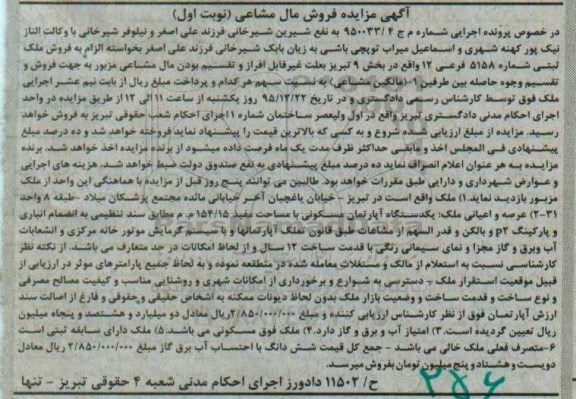 آگهی مزایده فروش مال مشاعی (نوبت اول)
در خصوص پرونده اجرایی شماره م ج ۹۵۰۰۳۳/۴ به نفع شیرین شیرخانی فرزند علی اصغر و نیلوفر شیرخانی با وکالت الناز
نیک پور کهنه شهری و اسماعیل میراب توپچی باشی به زیان بابک شیرخانی فرزند علی اصغر بخواسته الزام به فروش ملک
ثبتی شماره ۵۱۵۸ فرعی ۱۲ واقع در بخش ۹ تبریز بعلت غیرقابل افراز و تقسیم بودن مال مشاعی مزبور به جهت فروش و
تقسیم وجوه حاصله بین طرفین (مالکین مشاعی) به نسبت سهم هر کدام و پرداخت مبلغ ریال از بابت نیم عشر اجرایی
ملک فوق توسط کارشناس رسمی دادگستری و در تاریخ ۹۵/۱۲/۲۲ روز یکشنبه از ساعت ۱۱ الی ۱۲ از طریق مزایده در واحد
اجرای احکام مدنی دادگستری تبریز واقع در اول ولیعصر ساختمان شماره ۱ اجرای احکام شعب حقوقی تبریز به فروش خواهد
رسید. مزایده از مبلغ ارزیابی شده شروع و به کسی که بالاترین قیمت را پیشنهاد نماید فروخته خواهد شد و ده درصد مبلغ
پیشنهادی فی المجلس اخذ و مابقی حداکثر ظرف مدت یک ماه فرصت داده میشود از برنده مزایده اخذ خواهد شد. برنده
مزایده به هر عنوان اعلام انصراف نماید ده درصد مبلغ پیشنهادی به نفع صندوق دولت ضبط خواهد شد. هزینه های اجرایی
و عوارض شهرداری و دارایی طبق مقررات خواهد بود. طالبین می توانند پنج روز قبل از مزایده با هماهنگی این واحد از ملک
مزبور بازدید نماید. ۱) ملک واقع است در تبریز - خیابان باغچبان آخر خیابانی مائده مجتمع پزشکان میلاد - طبقه ۸ واحد
۳۱-۲) عرصه و اعیانی ملک: یکدستگاه آپارتمان مسکونی با مساحت مفید ۱۵۴/۱۵ م.م مطابق سند تنظیمی به انضمام انباری
و پارکینگ p۲ و بالکن و قدر السهم از مشاعات طبق قانون تملک آپارتمانها و با سیستم گرمایش موتور خانه مرکزی و انشعابات
آب وبرق و گاز مجزا و نمای سیمانی رنگی با قدمت ساخت ۱۲ سال و از لحاظ امکانات در حد متعارف می باشد. از نکته نظر
کارشناسی نسبت به استعلام از مالک و مستغلات معامله شده در منطقه نموده و به لحاظ جمیع پارامترهای موثر در ارزیابی از
قبیل موقعیت استقرار ملک - دسترسی به شوارع و برخورداری از امکانات شهری و روشنایی مناسب و کیفیت مصالح مصرفی
و نوع ساخت و قدمت ساخت و وضعیت بازار ملک بدون لحاظ دیونات ممکنه به اشخاص حقیقی وحقوقی و فارغ از اصالت سند
ارزش آپارتمان فوق از نظر کارشناس ارزیابی کننده و مبلغ ۲/۸۵۰/۰۰۰/۰۰۰ ریال معادل دو میلیارد و هشتصد و پنجاه میلیون
ریال تعیین گردیده است. ۳) امتیاز آب و برق و گاز دارد. ۴) ملک فوق مسکونی می باشد. ۵) ملک دارای سابقه ثبتی است
۶-متصرف فعلی ملک خالی می باشد - جمع کل قیمت شش دانگ با احتساب آب برق گاز مبلغ ۲/۸۵۰/۰۰۰/۰۰۰ ریال معادل
دویست و هشتاد و پنج میلیون تومان بفروش میرسد.
ح/۱۱۵۰۲ دادورز اجرای احکام مدنی شعبه ۴ حقوقی تبریز - تنها